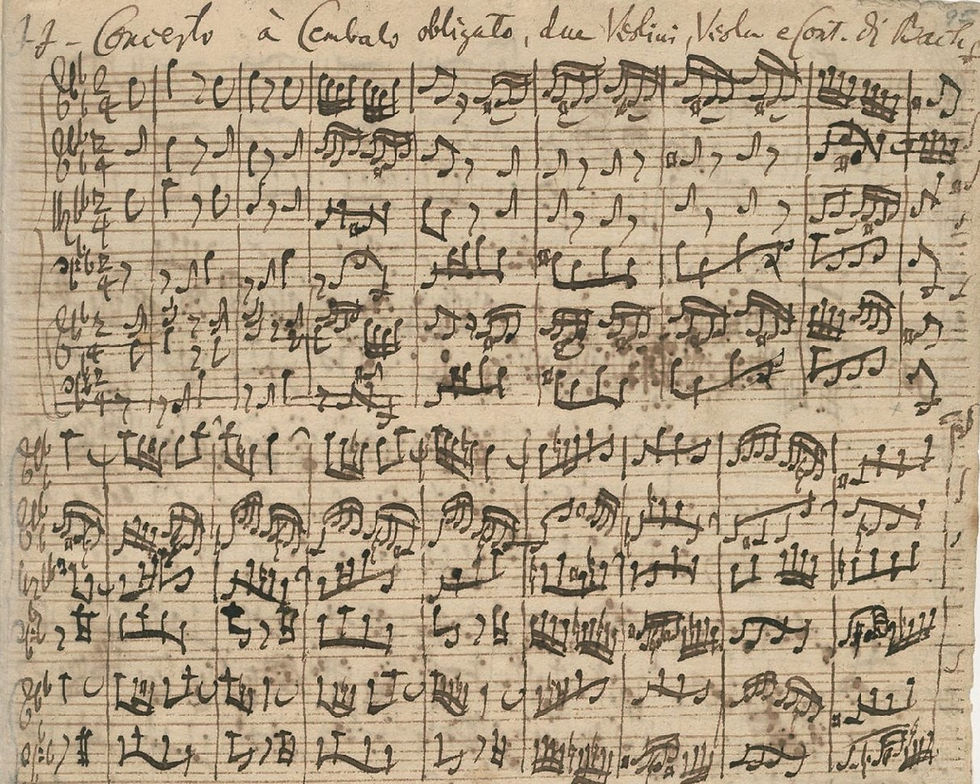 J. J. Concerto à Cembalo obligato, due Violini, Viola e Cont. di Bach.